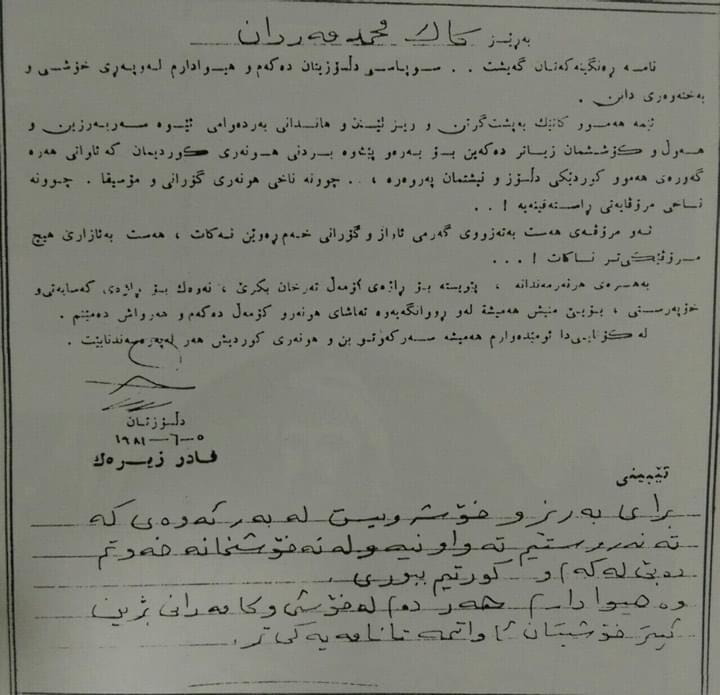 بەڕێز کاک محمد مەردان
نامە ڕەنگینەکەتان گەیشت . . سوپاسی دڵسۆزیتان دەکەم و هیوادارم لەوپەڕی خۆشی و
بەختەوەری دابن .
ئێمە هەموو کاتێک بەپشت گرتن و ڕیز لێنان و هاندانی بەردەوامی ئێوە سەربەرزین و
هەوڵ و کۆششمان زیاتر دەکەین بۆ بەرەو پێشەوە بردنی هونەری کوردیمان کە ئاواتی هەرە
گەورەی هەموو کوردێکی دڵسۆز و نیشتمان پەروەرە ، . . چوونە ناخی هونەری گۆرانی و مۆسیقا . چوونە
ناخی مرۆڤایەتی ڕاستەقینەیە ! . .
ئەو مرۆڤەی هەست بەتەزووی گەرمی ئاواز و گۆرانی خەم ڕەوێن نەکات ، هەست بەئازاری هیچ
مرۆڤێکی تر ناکات ! . . .
بەهرەی هونەرمەندانە ، پێویستە بۆ ڕاژەی کۆمەڵ تەرخان بکرێ ، نەوەک بۆ ڕاژەی کەسایەتی و
خۆپەرستی ، بۆیێ منیش هەمیشە لەو ڕووانگەیەوە تەماشای هونەرو کۆمەڵ دەکەم و هەرواش دەمێنم .
لە کۆتایی دا ئومێدەوارم هەمیشە سەرکەوتو بن و هونەری کوردیش هەر لەپەرەسەندنابێت .
دڵسۆزتان
٥-٦-١٩٨١
قادر زیرەک
تێبینی
برای بەرز و خۆشەویست لە بەر ئەوەی کە
تەندروستیم تەواو نیە و لە نەخۆشخانە خەوتم
دەبێ لە کەم و کورتیم ببوری.
وە هیوادارم هەر دەم لە خۆشی و کامەرانی بژین
ئیتر خۆشیتان ئاواتمە تا نامەیەکی تر.